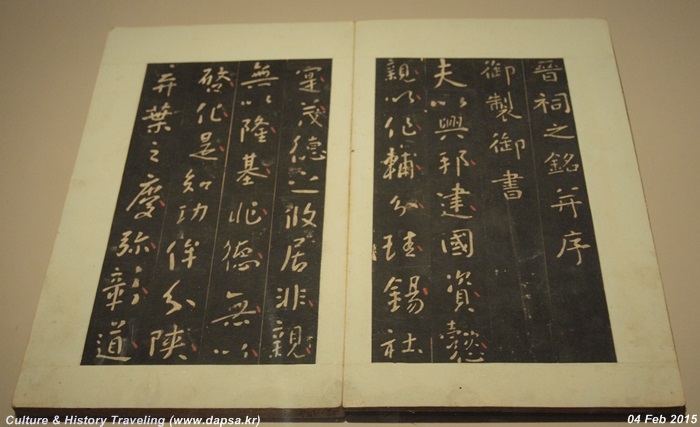 晉祠之銘并序
御製御書
夫以興邦建國資懿
親以作輔分珪錫社
寔茂德之攸居非親
無以隆基非德無以
啓化是知功侔分陝
弈葉之慶弥彰道
Culture & History Traveling (www.dapsa.kr)
04 Feb 2015